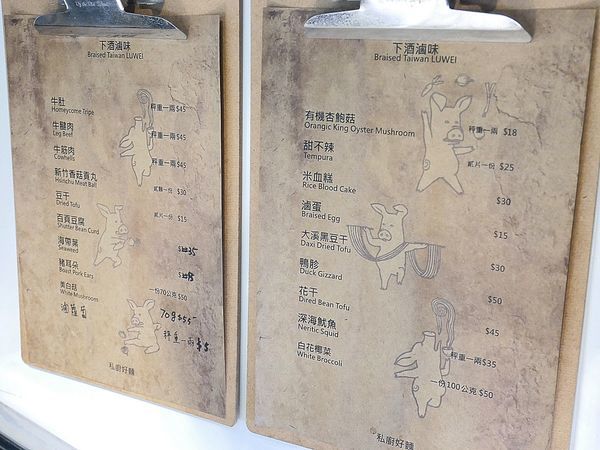 下酒滷味
Braised Taiwan LUWEI
牛肚
Honeycome Tripe
秤重一兩 $45
牛腱肉
Leg Beef
秤重一兩 $45
牛筋肉
Cowhells
秤重一兩 $45
新竹香菇貢丸
Hsinchu Meat Ball
貳顆一份 $30
豆干
Dried Tofu
貳片一份 $15
百頁豆腐
Shutter Bean Curd
海帶葉
Seaweed
35
豬耳朵
Boast Pork Ears
美白菇
White Mushroom
一份70公克 $50
70g $55
秤重一兩 $5
私廚好麵
下酒滷味
Braised Taiwan LUWEI
有機杏鮑菇
Orangic King Oyster Mushroom
秤重一兩 $18
甜不辣
Tempura
貳片一份 $25
米血糕
Rice Blood Cake
$30
滷蛋
Braised Egg
$15
大溪黑豆干
Daxi Dried Tofu
$30
鴨胗
Duck Gizzard
$50
花干
Dired Bean Tofu
$45
深海魷魚
Neritic Squid
秤重一兩$35
白花椰菜
White Broccoli
一份100公克 $50
私廚好麵